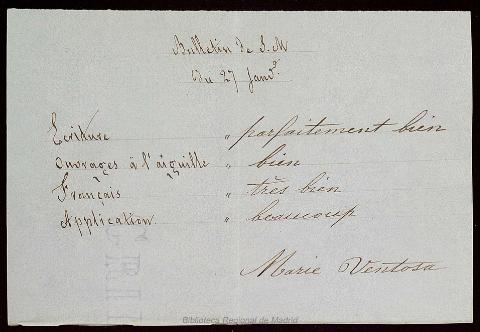 Bulletin de S. M
du 27 Janv?
Ecriture " parfaitement bien
Ouvrages à l'aiguille " bien
Français " très bien
Application " beaucoup
Marie Ventosa
Biblioteca Regional de Madrid